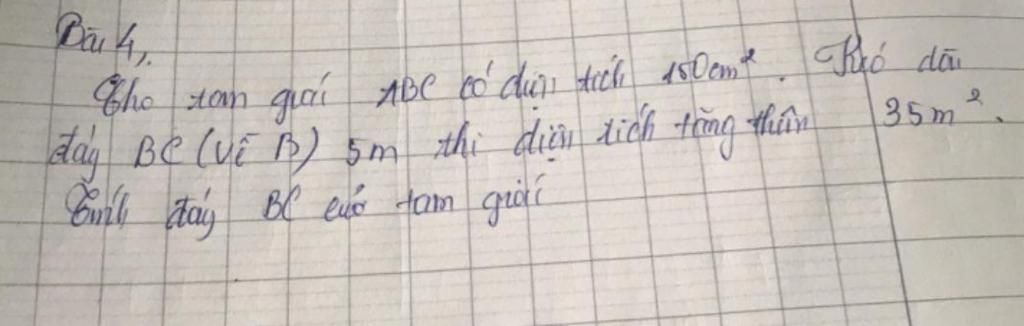 Bài 4,.
Cho tam giác ABC có diện tích 150cm². Kéo dài
đáy BC (về B) 5m thì diện tích tăng thêm 35m².
Tính đáy BC của tam giác